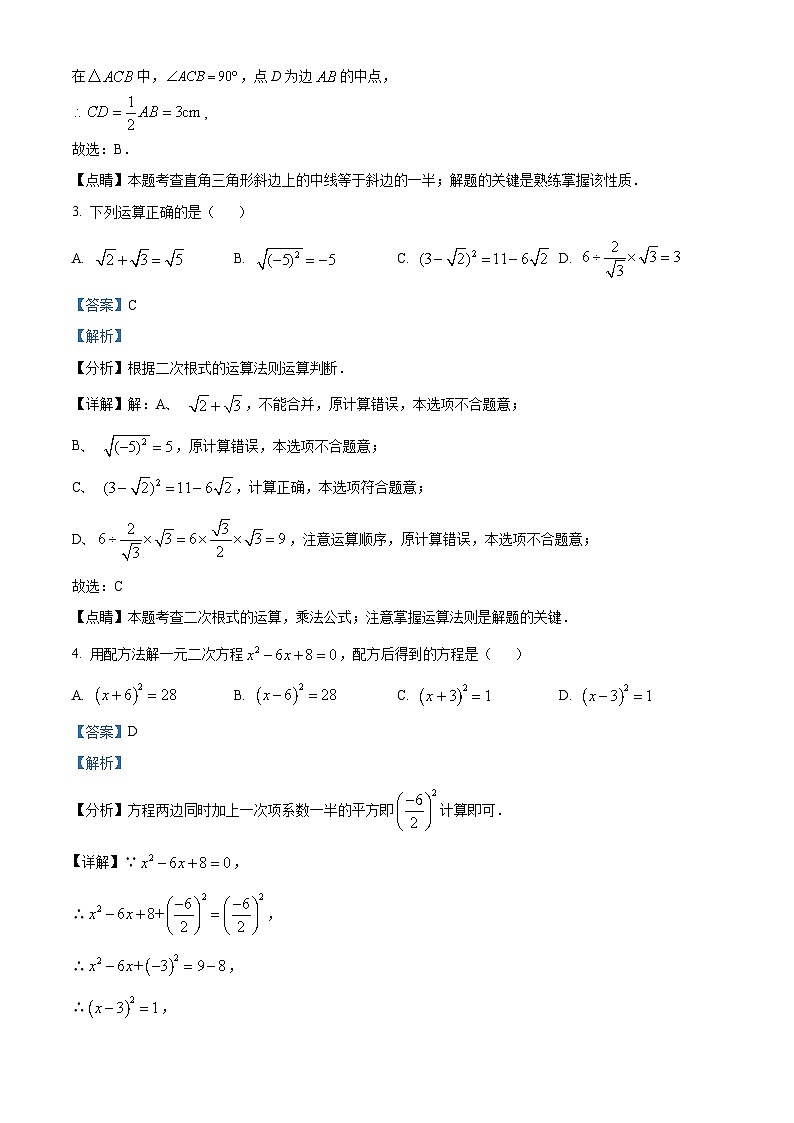 在△ACB中，∠ACB = 90°，点D为边AB的中点，
∴ CD = 1/2 AB = 3cm，
故选：B．
【点睛】本题考查直角三角形斜边上的中线等于斜边的一半；解题的关键是熟练掌握该性质．
3. 下列运算正确的是（　　）
A. √2 + √3 = √5　B. √((−5)²) = −5　C. (3−√2)² = 11−6√2　D. 6÷2/√3×√3 = 3
【答案】C
【解析】
【分析】根据二次根式的运算法则运算判断．
【详解】解：A、√2 + √3，不能合并，原计算错误，本选项不合题意；
B、√((−5)²) = 5，原计算错误，本选项不合题意；
C、(3−√2)² = 11−6√2，计算正确，本选项符合题意；
D、6÷2/√3×√3 = 6×√3/2×√3 = 9，注意运算顺序，原计算错误，本选项不合题意；
故选：C
【点睛】本题考查二次根式的运算，乘法公式；注意掌握运算法则是解题的关键．
4. 用配方法解一元二次方程x²−6x+8=0，配方后得到的方程是（　　）
A. (x+6)² = 28　B. (x−6)² = 28　C. (x+3)² = 1　D. (x−3)² = 1
【答案】D
【解析】
【分析】方程两边同时加上一次项系数一半的平方即(−6/2)²计算即可．
【详解】∵x²−6x+8=0，
∴x²−6x+8+(−6/2)²=(−6/2)²，
∴x²−6x+(−3)²=9−8，
∴(x−3)²=1，